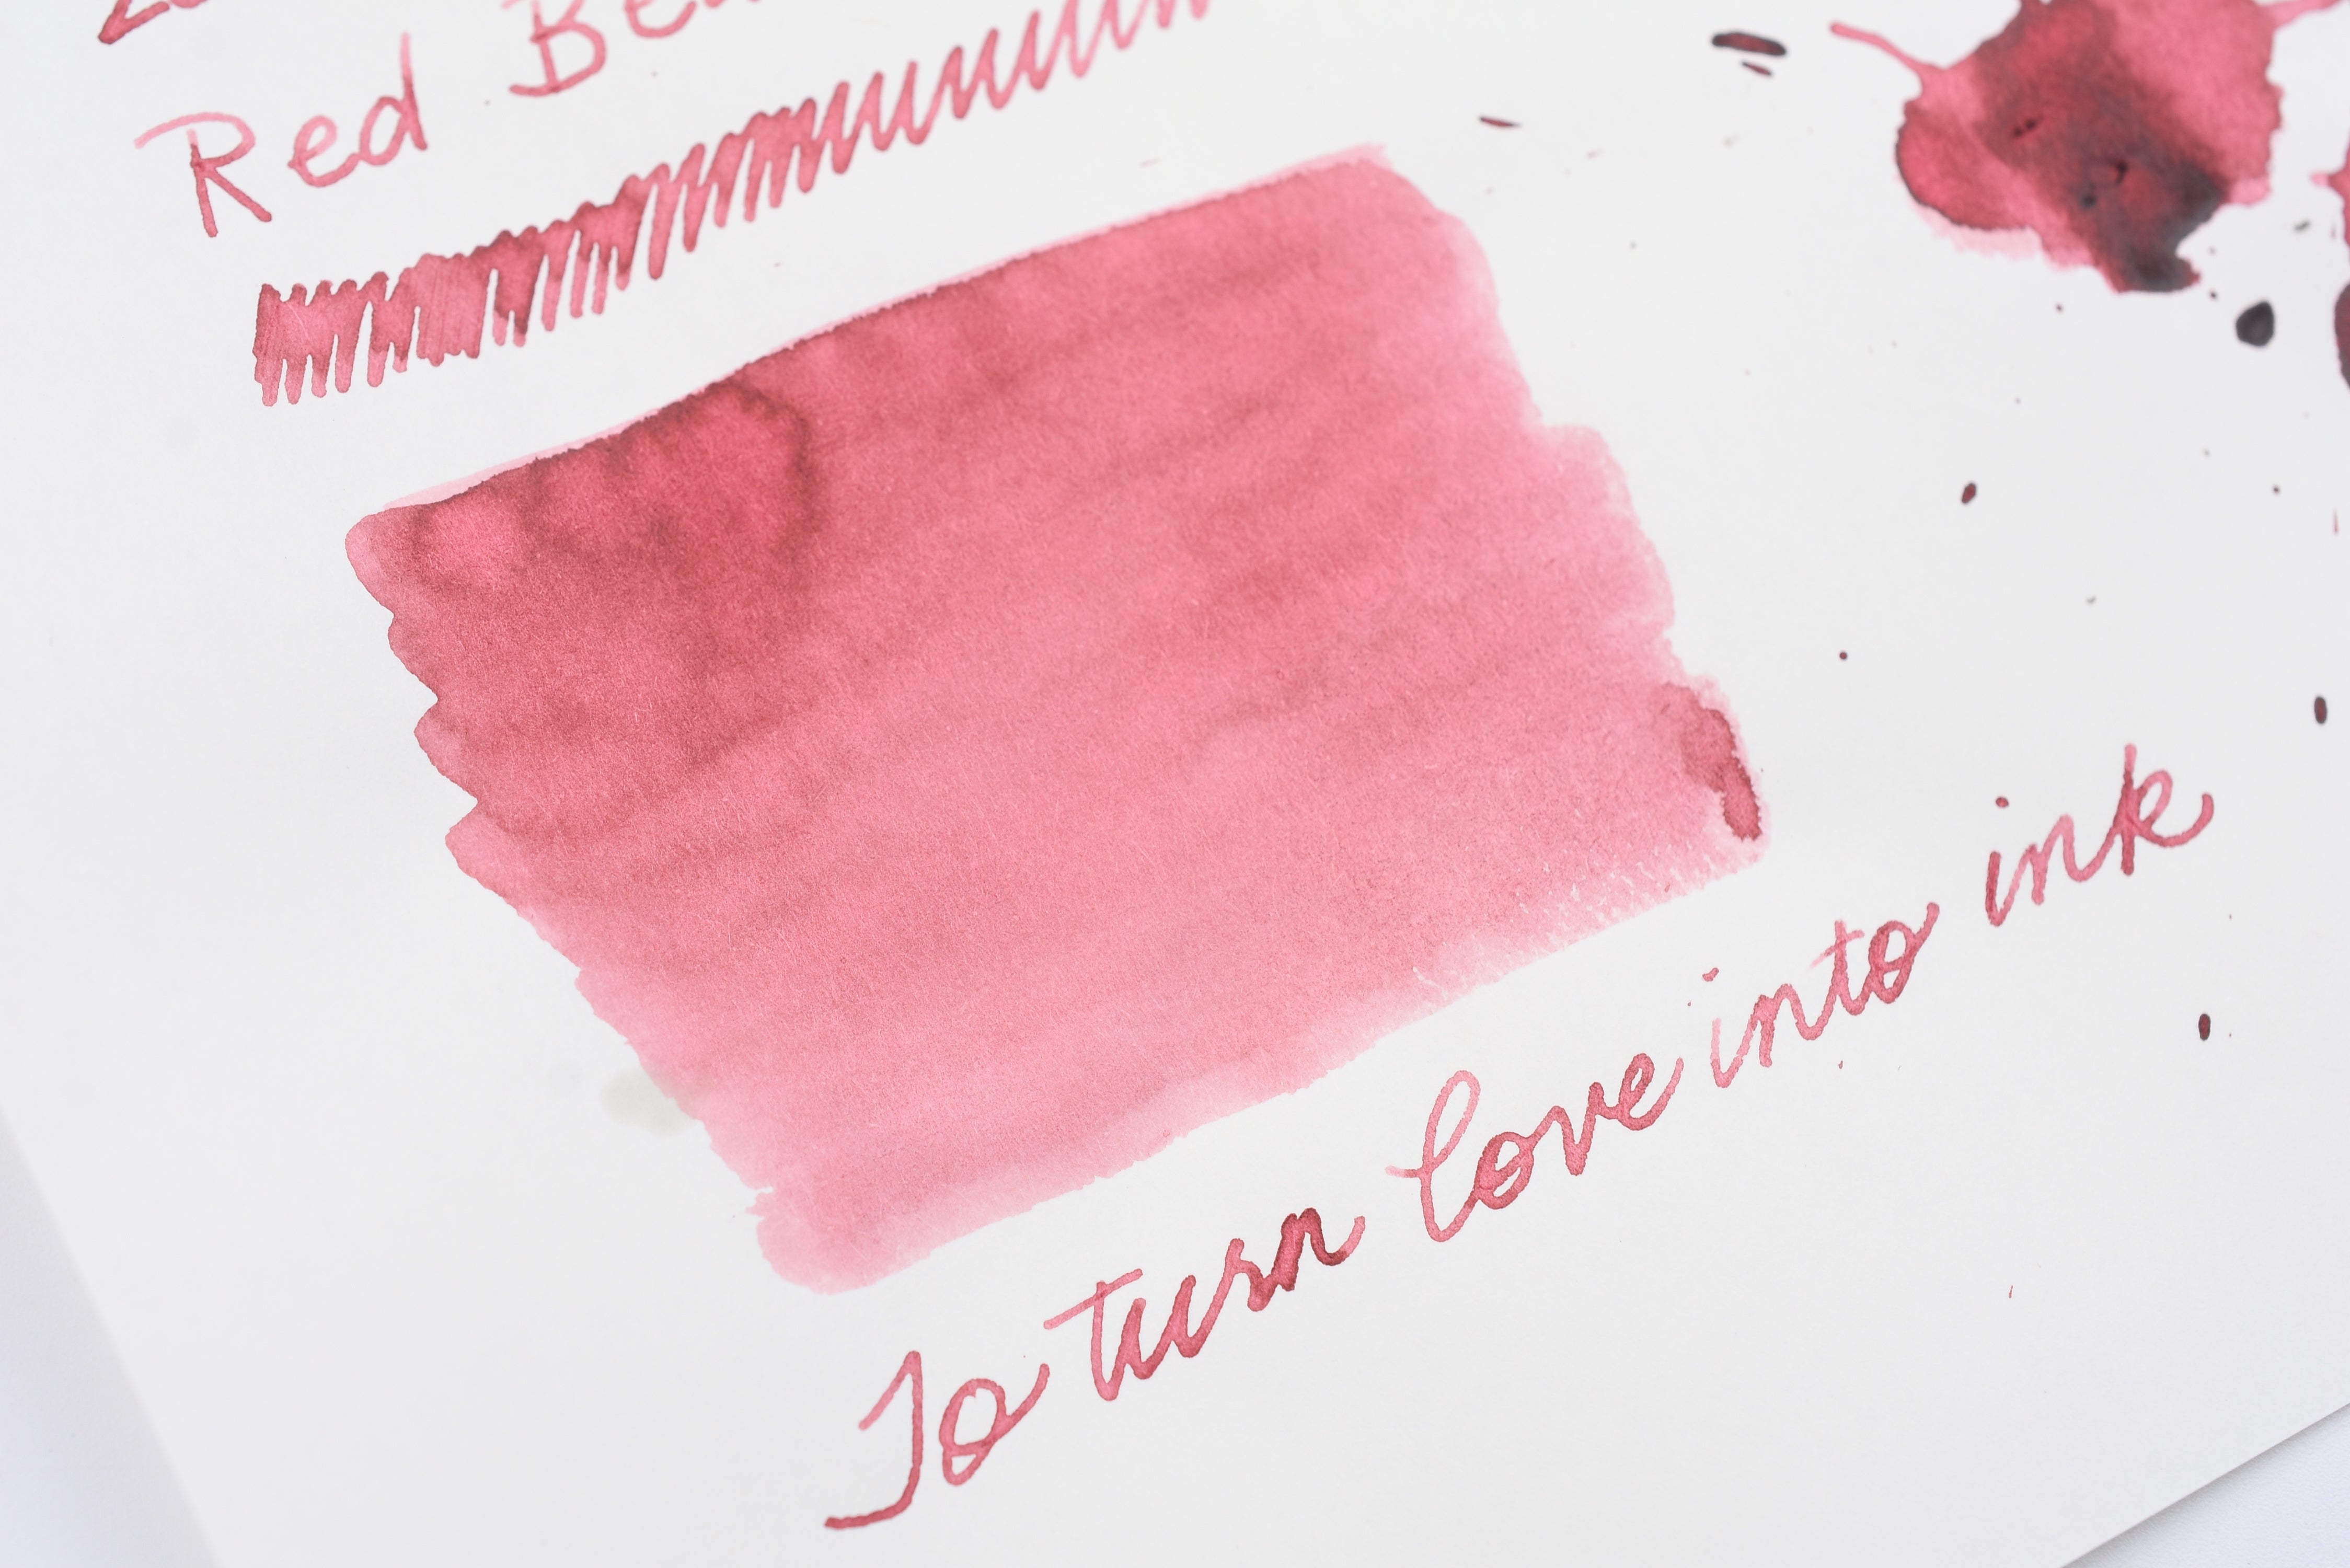 Red
To turn love into ink